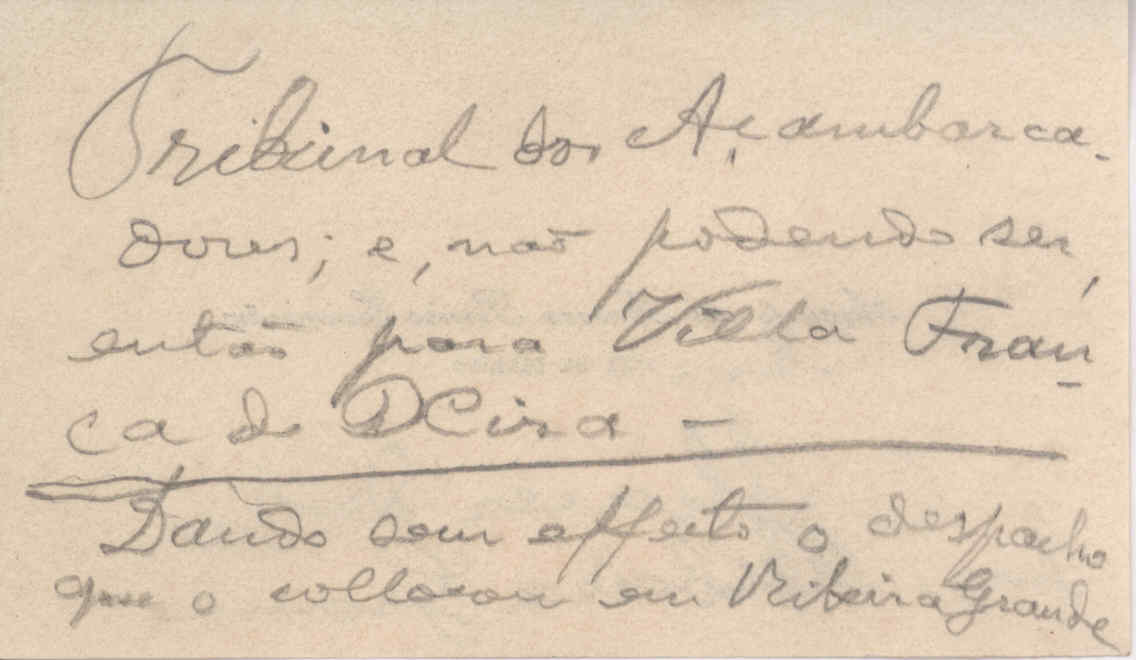 Tribunal dos Açambarca-
dores; e, não podendo ser,
então para Villa Fran-
ca de Xira —
Dando sem effeito o despacho
que o collocou em Ribeira Grande